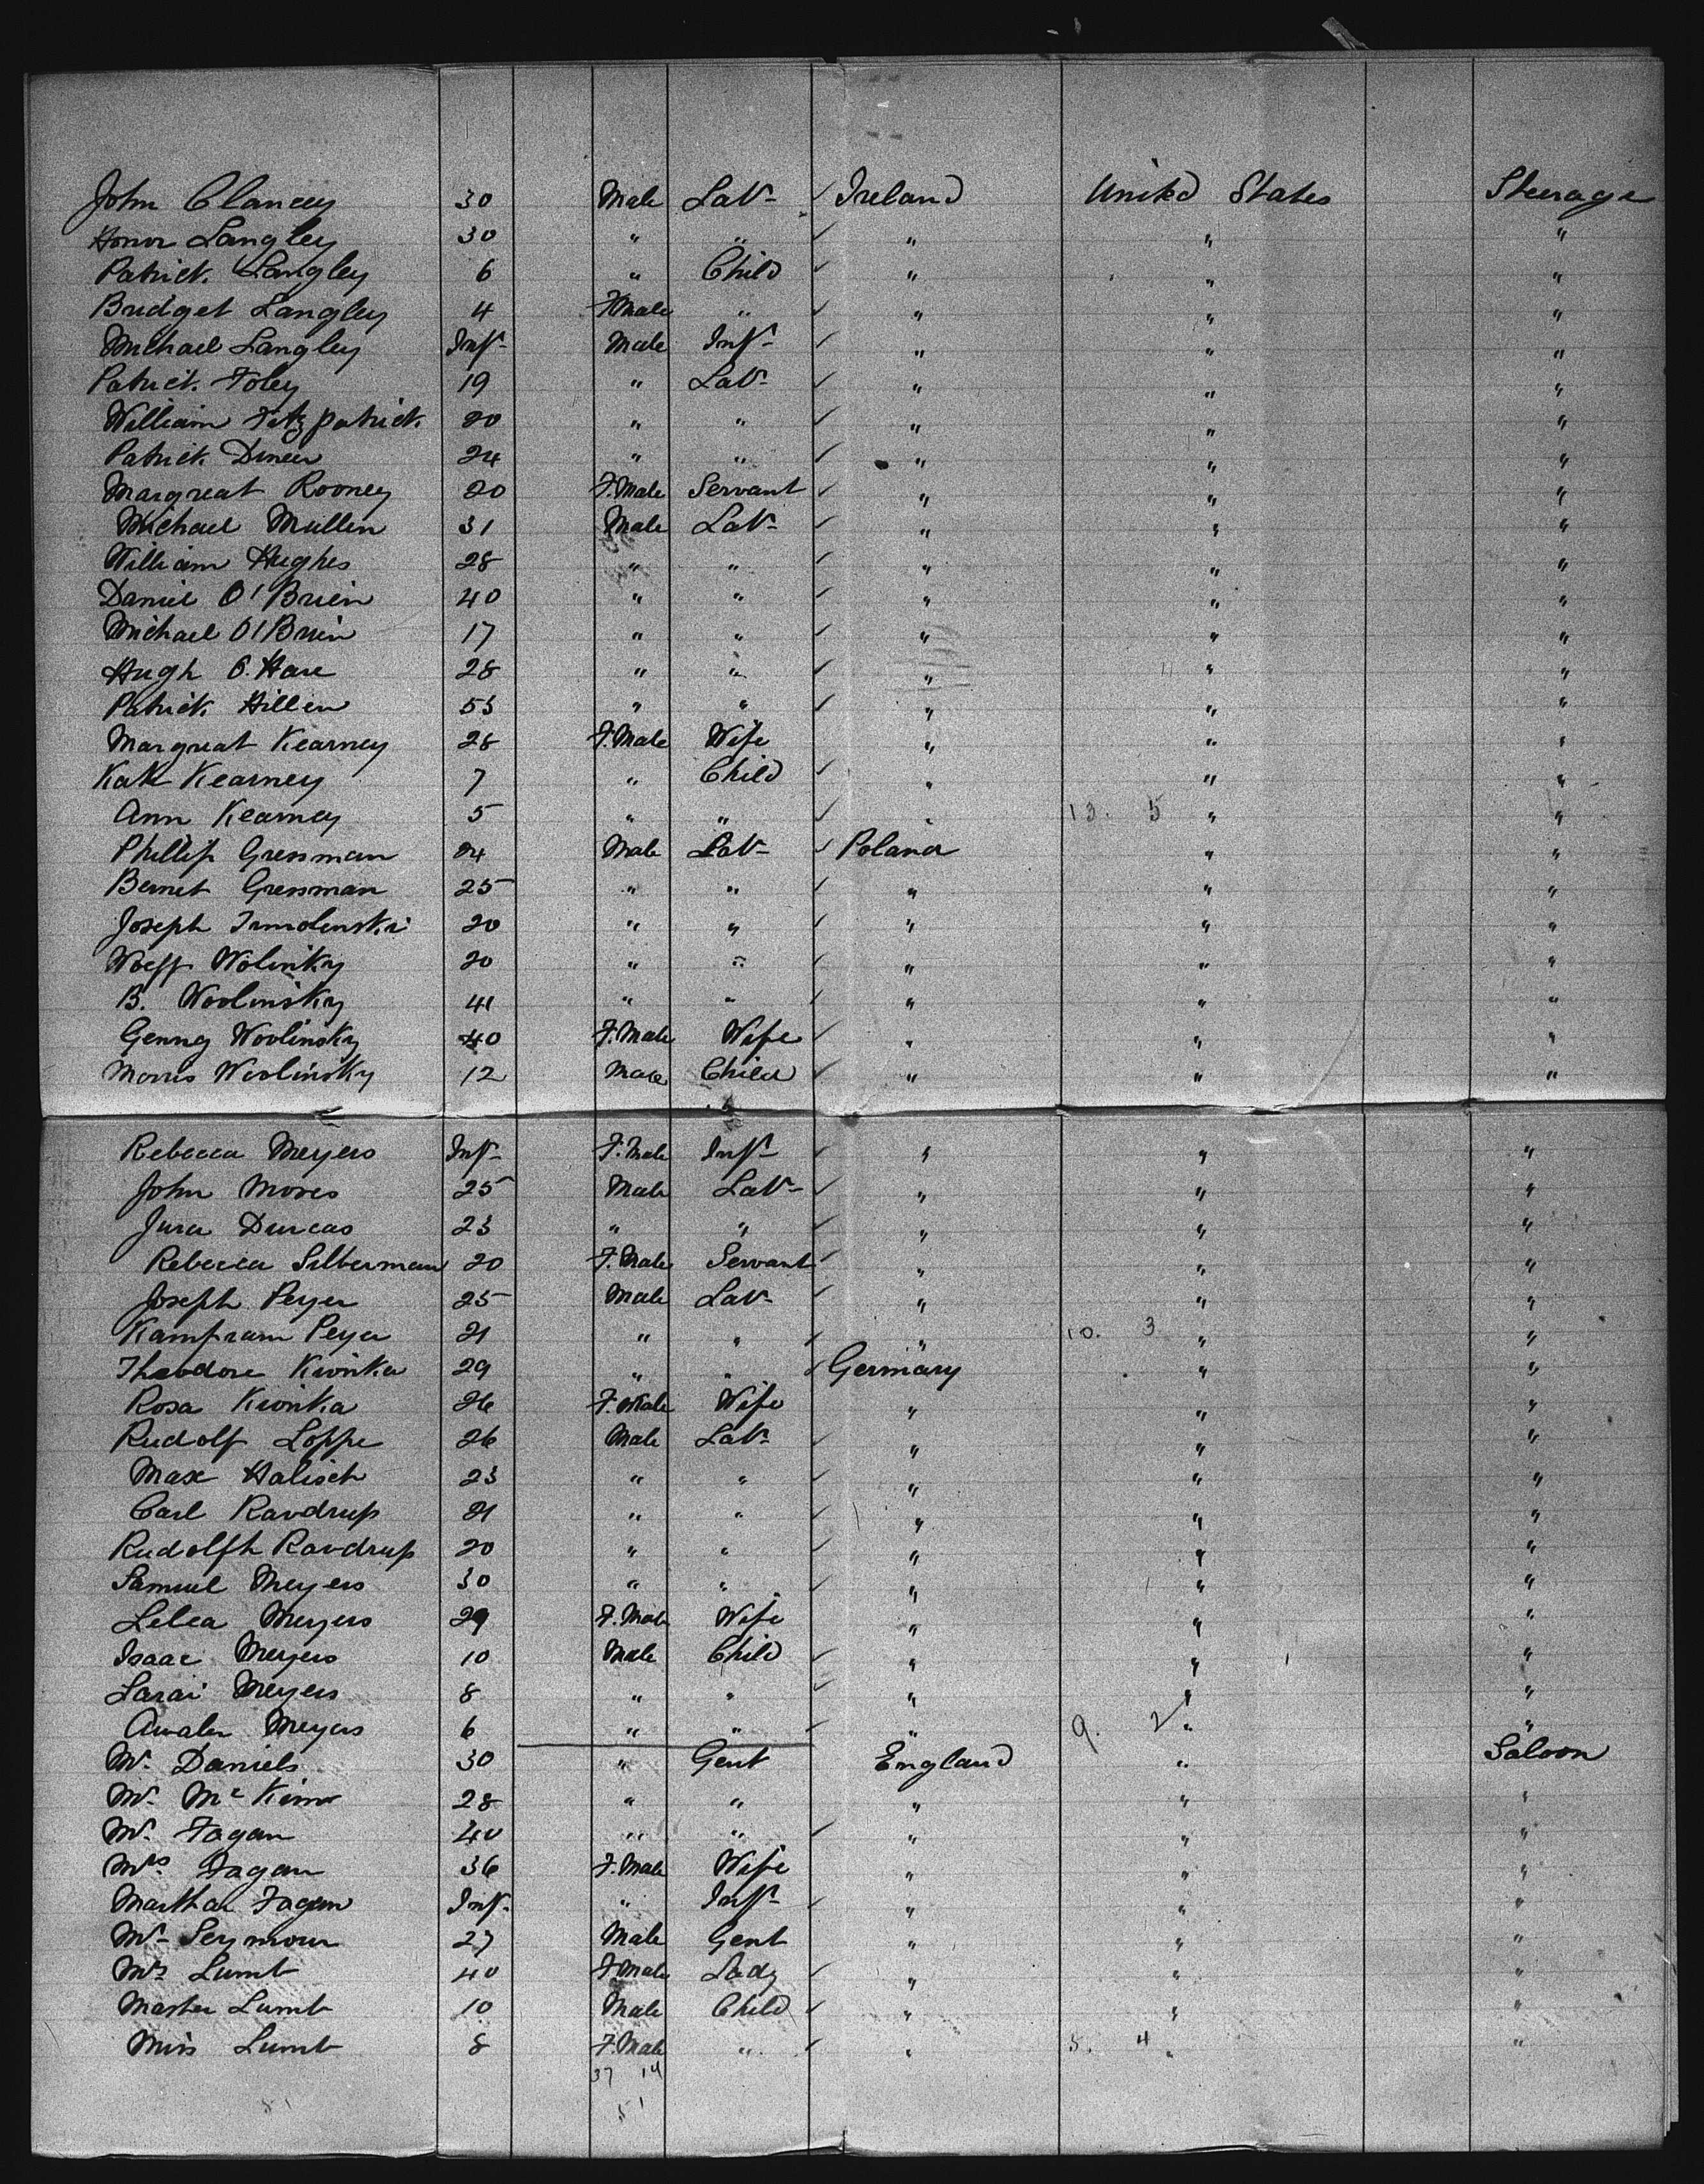 John Clancey 30 Male Labr Ireland United States Steerage
Honor Langley 30 " " " " "
Patrick Langley 6 " Child " " "
Bridget Langley 4 F.Male " " " "
Michael Langley Inft Male Inft " " "
Patrick Foley 19 " Labr " " "
William Fitzpatrick 20 " " " " "
Patrick 24 " " " " "
Margreat Rooney 20 F.Male Servant " " "
Michael Mullen 31 Male Labr " " "
William Hughes 28 " " " " "
Daniel O'Brien 40 " " " " "
Michael O'Brien 17 " " " " "
Hugh O.Hare 28 " " " " "
Patrick Hillen 53 " " " " "
Margreat Kearney 28 F.Male Wife " " "
Kate Kearney 7 " Child " " "
Ann Kearney 5 " " " 13. 5 " "
Phillip Gressman 24 Male Labr Poland " "
Bernet Gressman 25 " " " " "
Joseph 20 " " " " "
Wolff Wolinky 20 " " " " "
B. Woolinsky 41 " " " " "
Genny Woolinsky 40 F.Male Wife " " "
Morris Woolinsky 12 Male Child " " "
Rebecca Meyers Inft F.Male Inft " " "
John Moses 25 Male Labr " " "
Jura Durcas 23 " " " " "
Rebecca Silberman 20 F.Male Servant " " "
Joseph Peyer 25 Male Labr " " "
Kampram Peyer 21 " " " 10. 3 " "
Theodore Kwinka 29 " " Germany " "
Rosa Kwinka 26 F.Male Wife " " "
Rudolf Loppe 26 Male Labr " " "
Max Halisch 23 " " " " "
Carl Ravdrup 21 " " " " "
Rudolfh Ravdrup 20 " " " " "
Samuel Meyers 30 " " " " "
Lelea Meyers 29 F.Male Wife " " "
Isaac Meyers 10 Male Child " " "
Sarai Meyers 8 " " " " "
Meyers 6 " " " 9. 2 " "
Mr. Daniels 30 " Gent England " Saloon
Mr. McKim 28 " " " " "
Mr. Fagan 40 " " " " "
Mrs. Fagan 36 F.Male Wife " " "
Martha Fagan Inft " Inft " " "
Mr. Seymour 27 Male Gent " " "
Mrs Lumb 40 F.Male Lady " " "
Master Lumb 10 Male Child " " "
Miss Lumb 8 F.Male " " 5. 4 " "
37 14
51 51